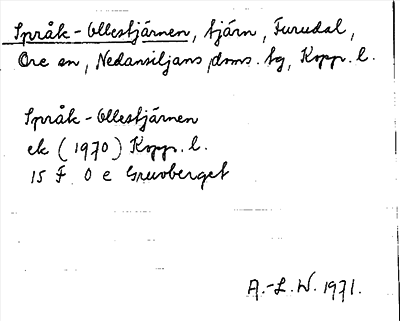 Språk-Ollestjärnen, tjärn, Furudal,
Ore sn, Nedansiljans doms. tg, Kopp. l.
Språk-Ollestjärnen
ek (1970) Kopp. l.
15 F 0 e Gruvberget
A.-L. W. 1971.